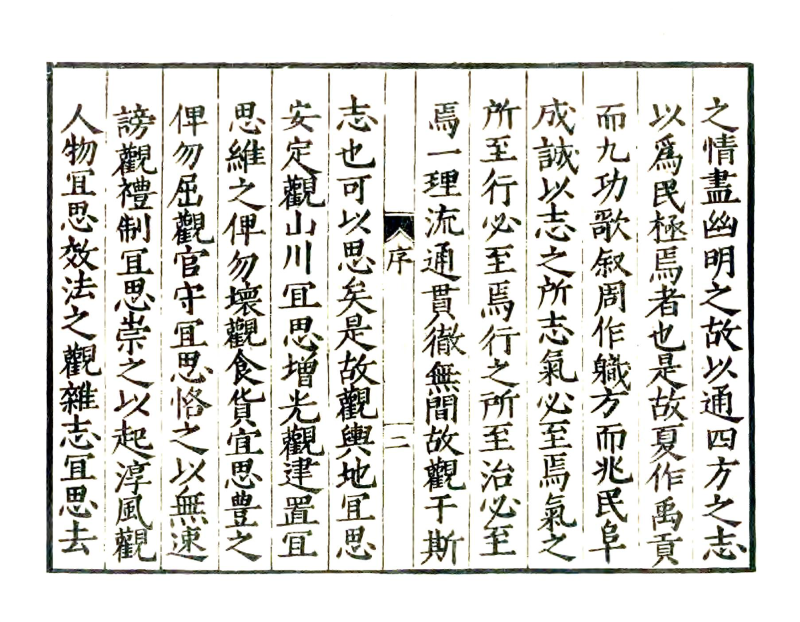 之情盡幽明之故以通四方之志
以爲民極焉者也是故夏作禹貢
而九功歌叙周作職方而兆民阜
成誠以志之所志氣必至焉氣之
所至行必至焉行之所至治必至
焉一理流通貫徹無間故觀于斯
序
二
志也可以思矣是故觀輿地宜思
安定觀山川宜思增光觀建置宜
思維之俾勿壞觀食貨宜思豊之
俾勿屈觀官守宜思恪之以無速
謗觀禮制宜思崇之以起淳風觀
人物宜思效法之觀雜志宜思去